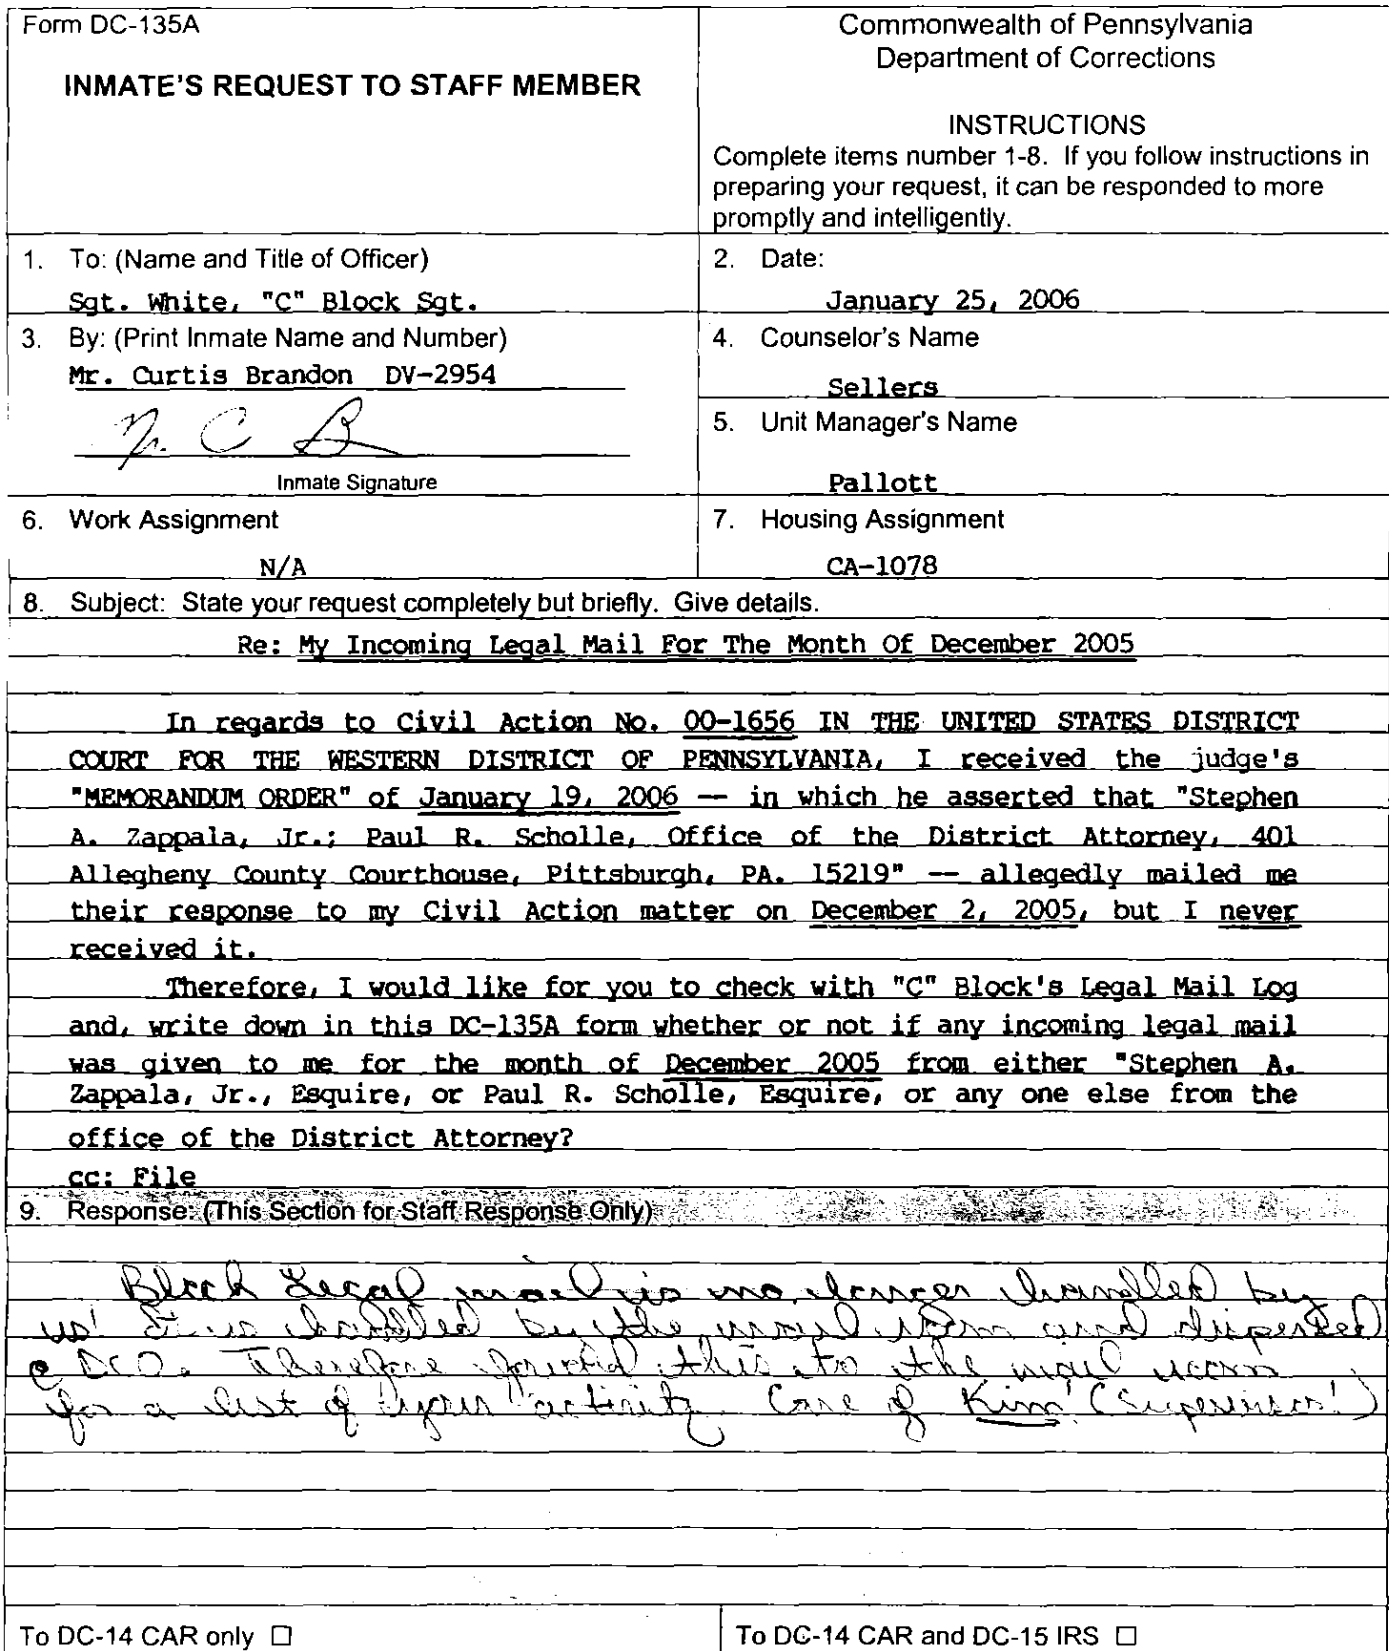 Form DC-135A
INMATE'S REQUEST TO STAFF MEMBER
Commonwealth of Pennsylvania
Department of Corrections
INSTRUCTIONS
Complete items number 1-8. If you follow instructions in
preparing your request, it can be responded to more
promptly and intelligently.
1. To: (Name and Title of Officer)
Sgt. White, "C" Block Sgt.
2. Date:
January 25, 2006
3. By: (Print Inmate Name and Number)
Mr. Curtis Brandon DV-2954
Mr. C B
Inmate Signature
4. Counselor's Name
Sellers
5. Unit Manager's Name
Pallott
6. Work Assignment
N/A
7. Housing Assignment
CA-1078
8. Subject: State your request completely but briefly. Give details.
Re: My Incoming Legal Mail For The Month Of December 2005
In regards to Civil Action No. 00-1656 IN THE UNITED STATES DISTRICT
COURT FOR THE WESTERN DISTRICT OF PENNSYLVANIA, I received the judge's
"MEMORANDUM ORDER" of January 19, 2006 -- in which he asserted that "Stephen
A. Zappala, Jr.; Paul R. Scholle, Office of the District Attorney, 401
Allegheny County Courthouse, Pittsburgh, PA. 15219" -- allegedly mailed me
their response to my Civil Action matter on December 2, 2005, but I never
received it.
Therefore, I would like for you to check with "C" Block's Legal Mail Log
and, write down in this DC-135A form whether or not if any incoming legal mail
was given to me for the month of December 2005 from either "Stephen A.
Zappala, Jr., Esquire, or Paul R. Scholle, Esquire, or any one else from the
office of the District Attorney?
cc: File
9. Response: (This Section for Staff Response Only)
Block Legal mail is no longer handled by
us! It is handled by the mail room and dispersed
@ DCO. Therefore forward this to the mail room
for a list of your activity. Care of Kim! (Supervisor!)
To DC-14 CAR only ☐
To DC-14 CAR and DC-15 IRS ☐